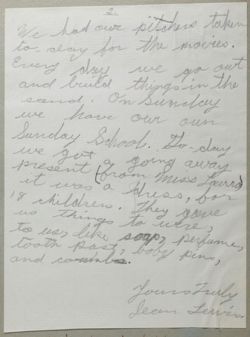 2
We had our pitchers taken
to-day for the movies.
Every day we go out
and build things in the
sand. On Sunday
we have our own
Sunday School. To-day
we got a going away
present (from Miss
it was a dress, for
18 children. They gave
us things to
to us, like soap, perfume,
tooth past, boby pins,
and combs.
Yours Truly
Jean